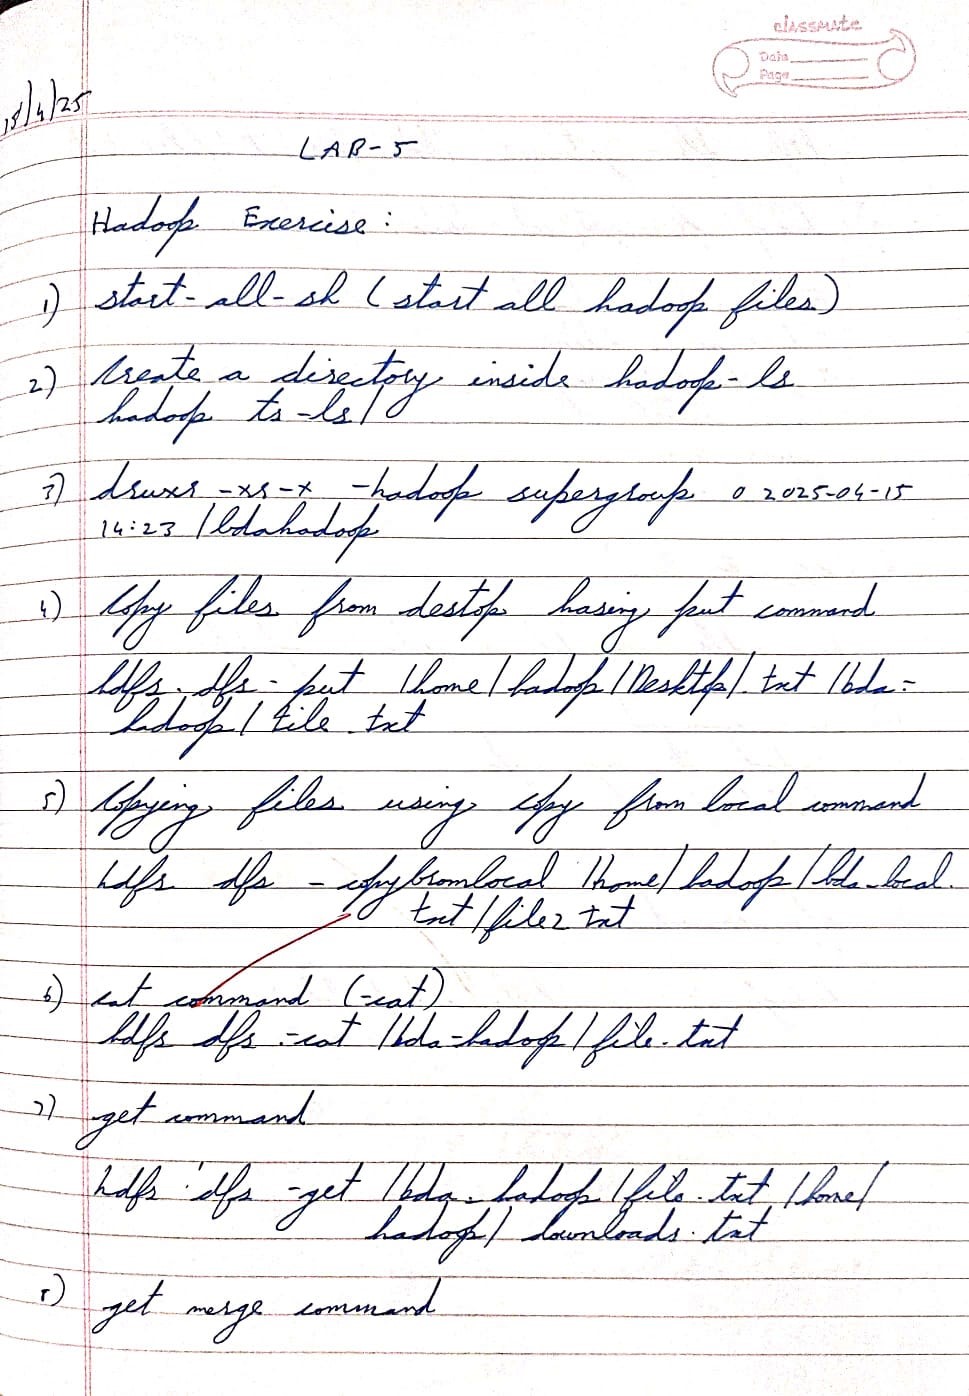 classmate
Date
Page
15/4/25
LAB-5
Hadoop Exercise :
1) start-all-sh (start all hadoop files)
2) Create a directory inside hadoop-ls
hadoop ts -ls /
3) drwxr -xr-x -hadoop supergroup 0 2025-04-15
14:23 /bdahadoop
4) Copy files from destop hasing put command
hdfs dfs - put /home/hadoop/Desktop/.txt /bda-
hadoop/file.txt
5) Copying files using copy from local command
hdfs dfs - copybromlocal /home/hadoop/bda-local.
txt /file2 txt
6) cat command (-cat)
hdfs dfs -cat /bda-hadoop/file.txt
7) get command
hdfs dfs -get /bda-hadoop/file.txt /home/
hadoop/downloads.txt
8) get merge command